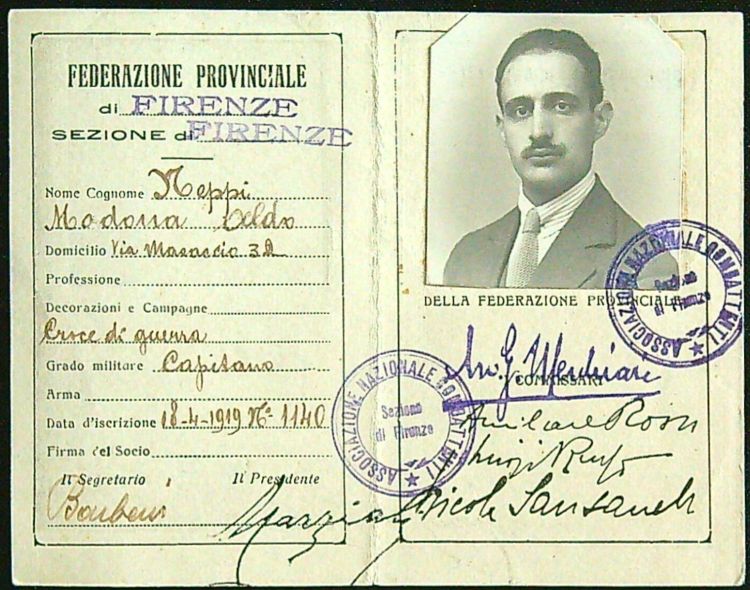 FEDERAZIONE PROVINCIALE
di FIRENZE
SEZIONE di FIRENZE
Nome Cognome Neppi
Modona Aldo
Domicilio Via Masaccio 32
Professione
Decorazioni e Campagne
Croce di guerra
Grado militare Capitano
Arma
Data d'iscrizione 18-4-1919 No. 1140
Firma del Socio
Il Segretario Il Presidente
ASSOCIAZIONE NAZIONALE COMBATTENTI
Sezione
di Firenze
ASSOCIAZIONE NAZIONALE COMBATTENTI
Sezione
di Firenze
DELLA FEDERAZIONE PROVINCIALE
COMMISSARI